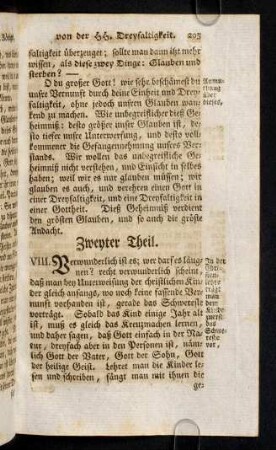 von der HH. Dreyfaltigkeit. 205
faltigkeit überzeuget; sollte man dann itzt mehr wissen,
als diese zwey Dinge: Glauben und
sterben? —
O du großer Gott! wie sehr beschämest du
unsre Vernunft durch deine Einheit und Dreyfaltigkeit,
ohne jedoch unsern Glauben wankend
zu machen. Wie unbegreiflicher dieß Geheimniß:
desto größer unser Glauben ist, desto
tiefer unsre Unterwerfung, und desto vollkommener
die Gefangennehmung unsres Verstands.
Wir wollen das unbegreifliche Geheimniß
nicht verstehen, und Einsicht in selbes
haben; weil wir es nur glauben müssen; wir
glauben es auch, und verehren einen Gott in
einer Dreyfaltigkeit, und eine Dreyfaltigkeit in
einer Gottheit. Dieß Geheimniß verdient
den größten Glauben, und so auch die größte
Andacht.
Zweyter Theil.
VIII. Verwunderlich ist es; wer darf es läugnen?
recht verwunderlich scheint,
daß man bey Unterweisung der christlichen Kinder
gleich anfangs, wo noch keine fassende Vernunft
vorhanden ist, gerade das Schwereste
vorträgt. Sobald das Kind einige Jahr alt
ist, muß es gleich das Kreuzmachen lernen,
und daher sagen, daß Gott einfach in der Natur,
dreyfach aber in den Personen ist, nämlich
Gott der Vater, Gott der Sohn, Gott
der heilige Geist. Lehret man die Kinder lesen
und schreiben, fängt man mit ihnen die
ge=